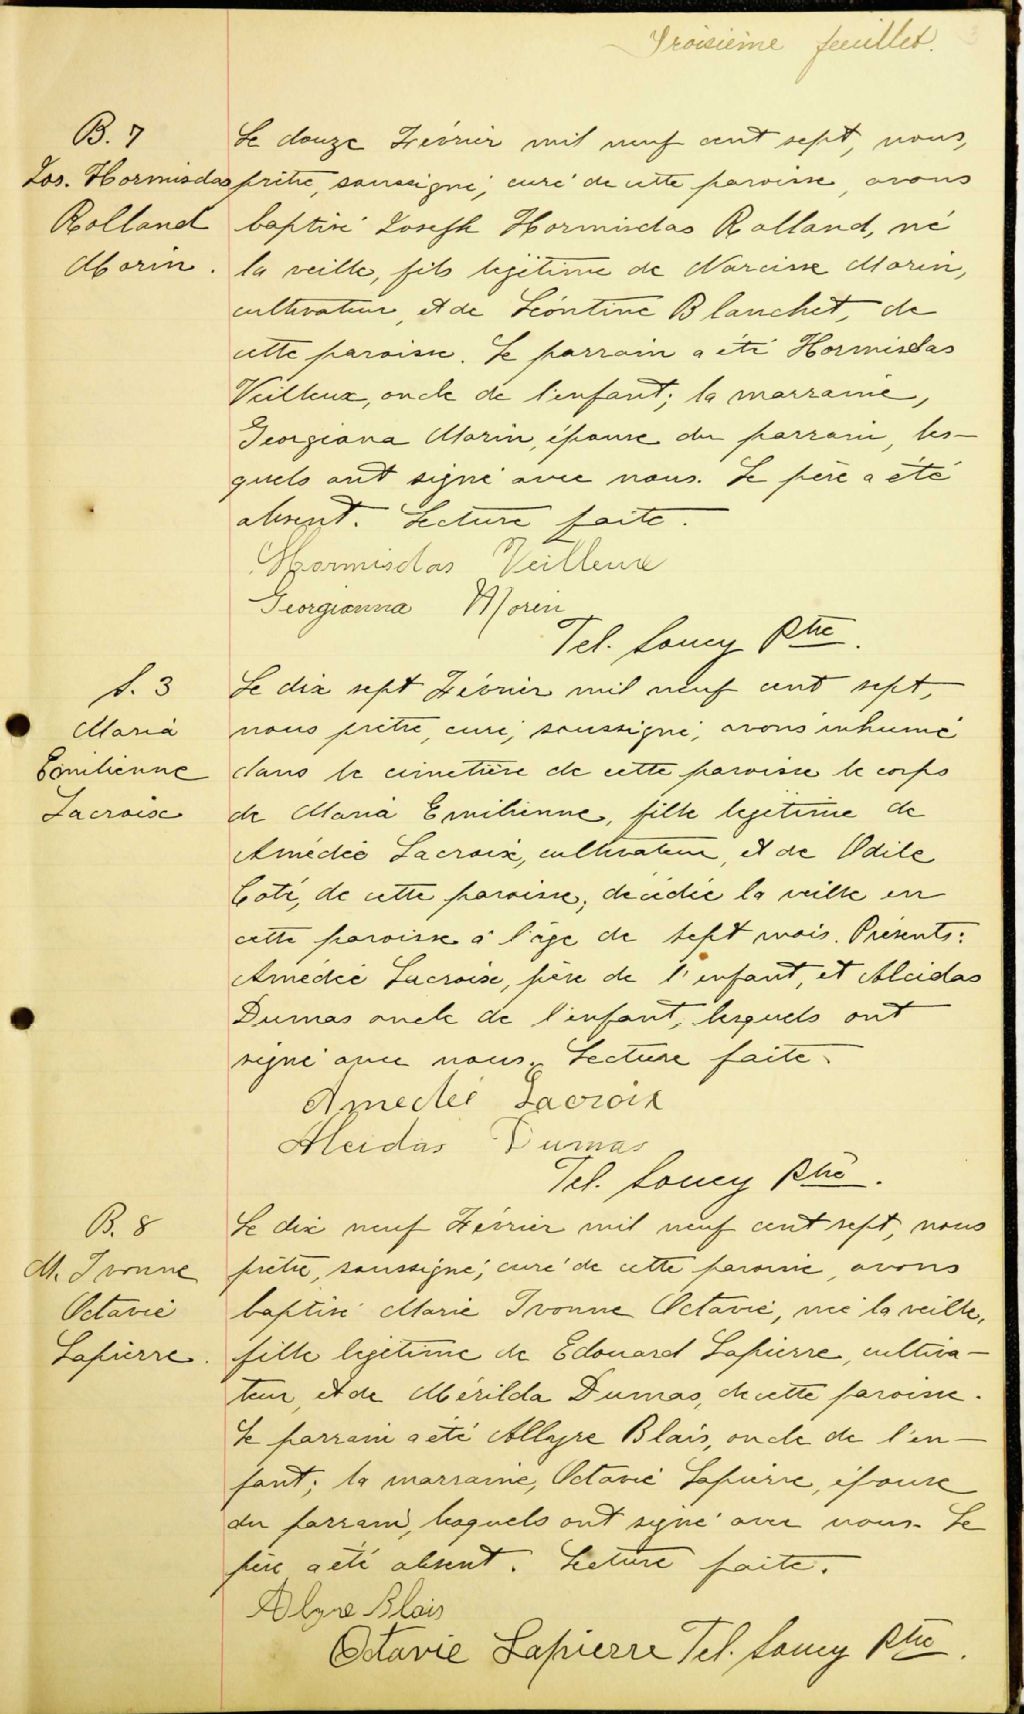 Troisième feuillet.
B. 7
Jos. Hormisdas
Rolland
Morin.
Le douze Février mil neuf cent sept, nous,
prêtre, soussigné, curé de cette paroisse, avons
baptisé Joseph Hormisdas Rolland, né
la veille, fils légitime de Narcisse Morin,
cultivateur, et de Léontine Blanchet, de
cette paroisse. Le parrain a été Hormisdas
Veilleux, oncle de l'enfant; la marraine,
Georgiana Morin, épouse du parrain, les-
quels ont signé avec nous. Le père a été
absent. Lecture faite.
Hormisdas Veilleux
Georgianna Morin
Tel. Soucy Ptre.
S. 3
Maria
Emilienne
Lacroix
Le dix sept Février mil neuf cent sept,
nous prêtre, curé, soussigné, avons inhumé
dans le cimetière de cette paroisse le corps
de Maria Emilienne, fille légitime de
Amédée Lacroix, cultivateur, et de Odile
Coté, de cette paroisse, décédée la veille en
cette paroisse à l'âge de sept mois. Présents:
Amédée Lacroix, père de l'enfant, et Alcidas
Dumas oncle de l'enfant, lesquels ont
signé avec nous. Lecture faite.
Amedée Lacroix
Alcidas Dumas
Tel. Soucy Ptre.
B. 8
M. Ivonne
Octavie
Lapierre.
Le dix neuf Février mil neuf cent sept, nous
prêtre, soussigné, curé de cette paroisse, avons
baptisé Marie Ivonne Octavie, née la veille,
fille légitime de Edouard Lapierre, cultiva-
teur, et de Mérilda Dumas, de cette paroisse.
Le parrain a été Allyre Blais, oncle de l'en-
fant; la marraine, Octavie Lapierre, épouse
du parrain, lesquels ont signé avec nous. Le
père a été absent. Lecture faite.
Alyre Blais
Octavie Lapierre Tel. Soucy Ptre.